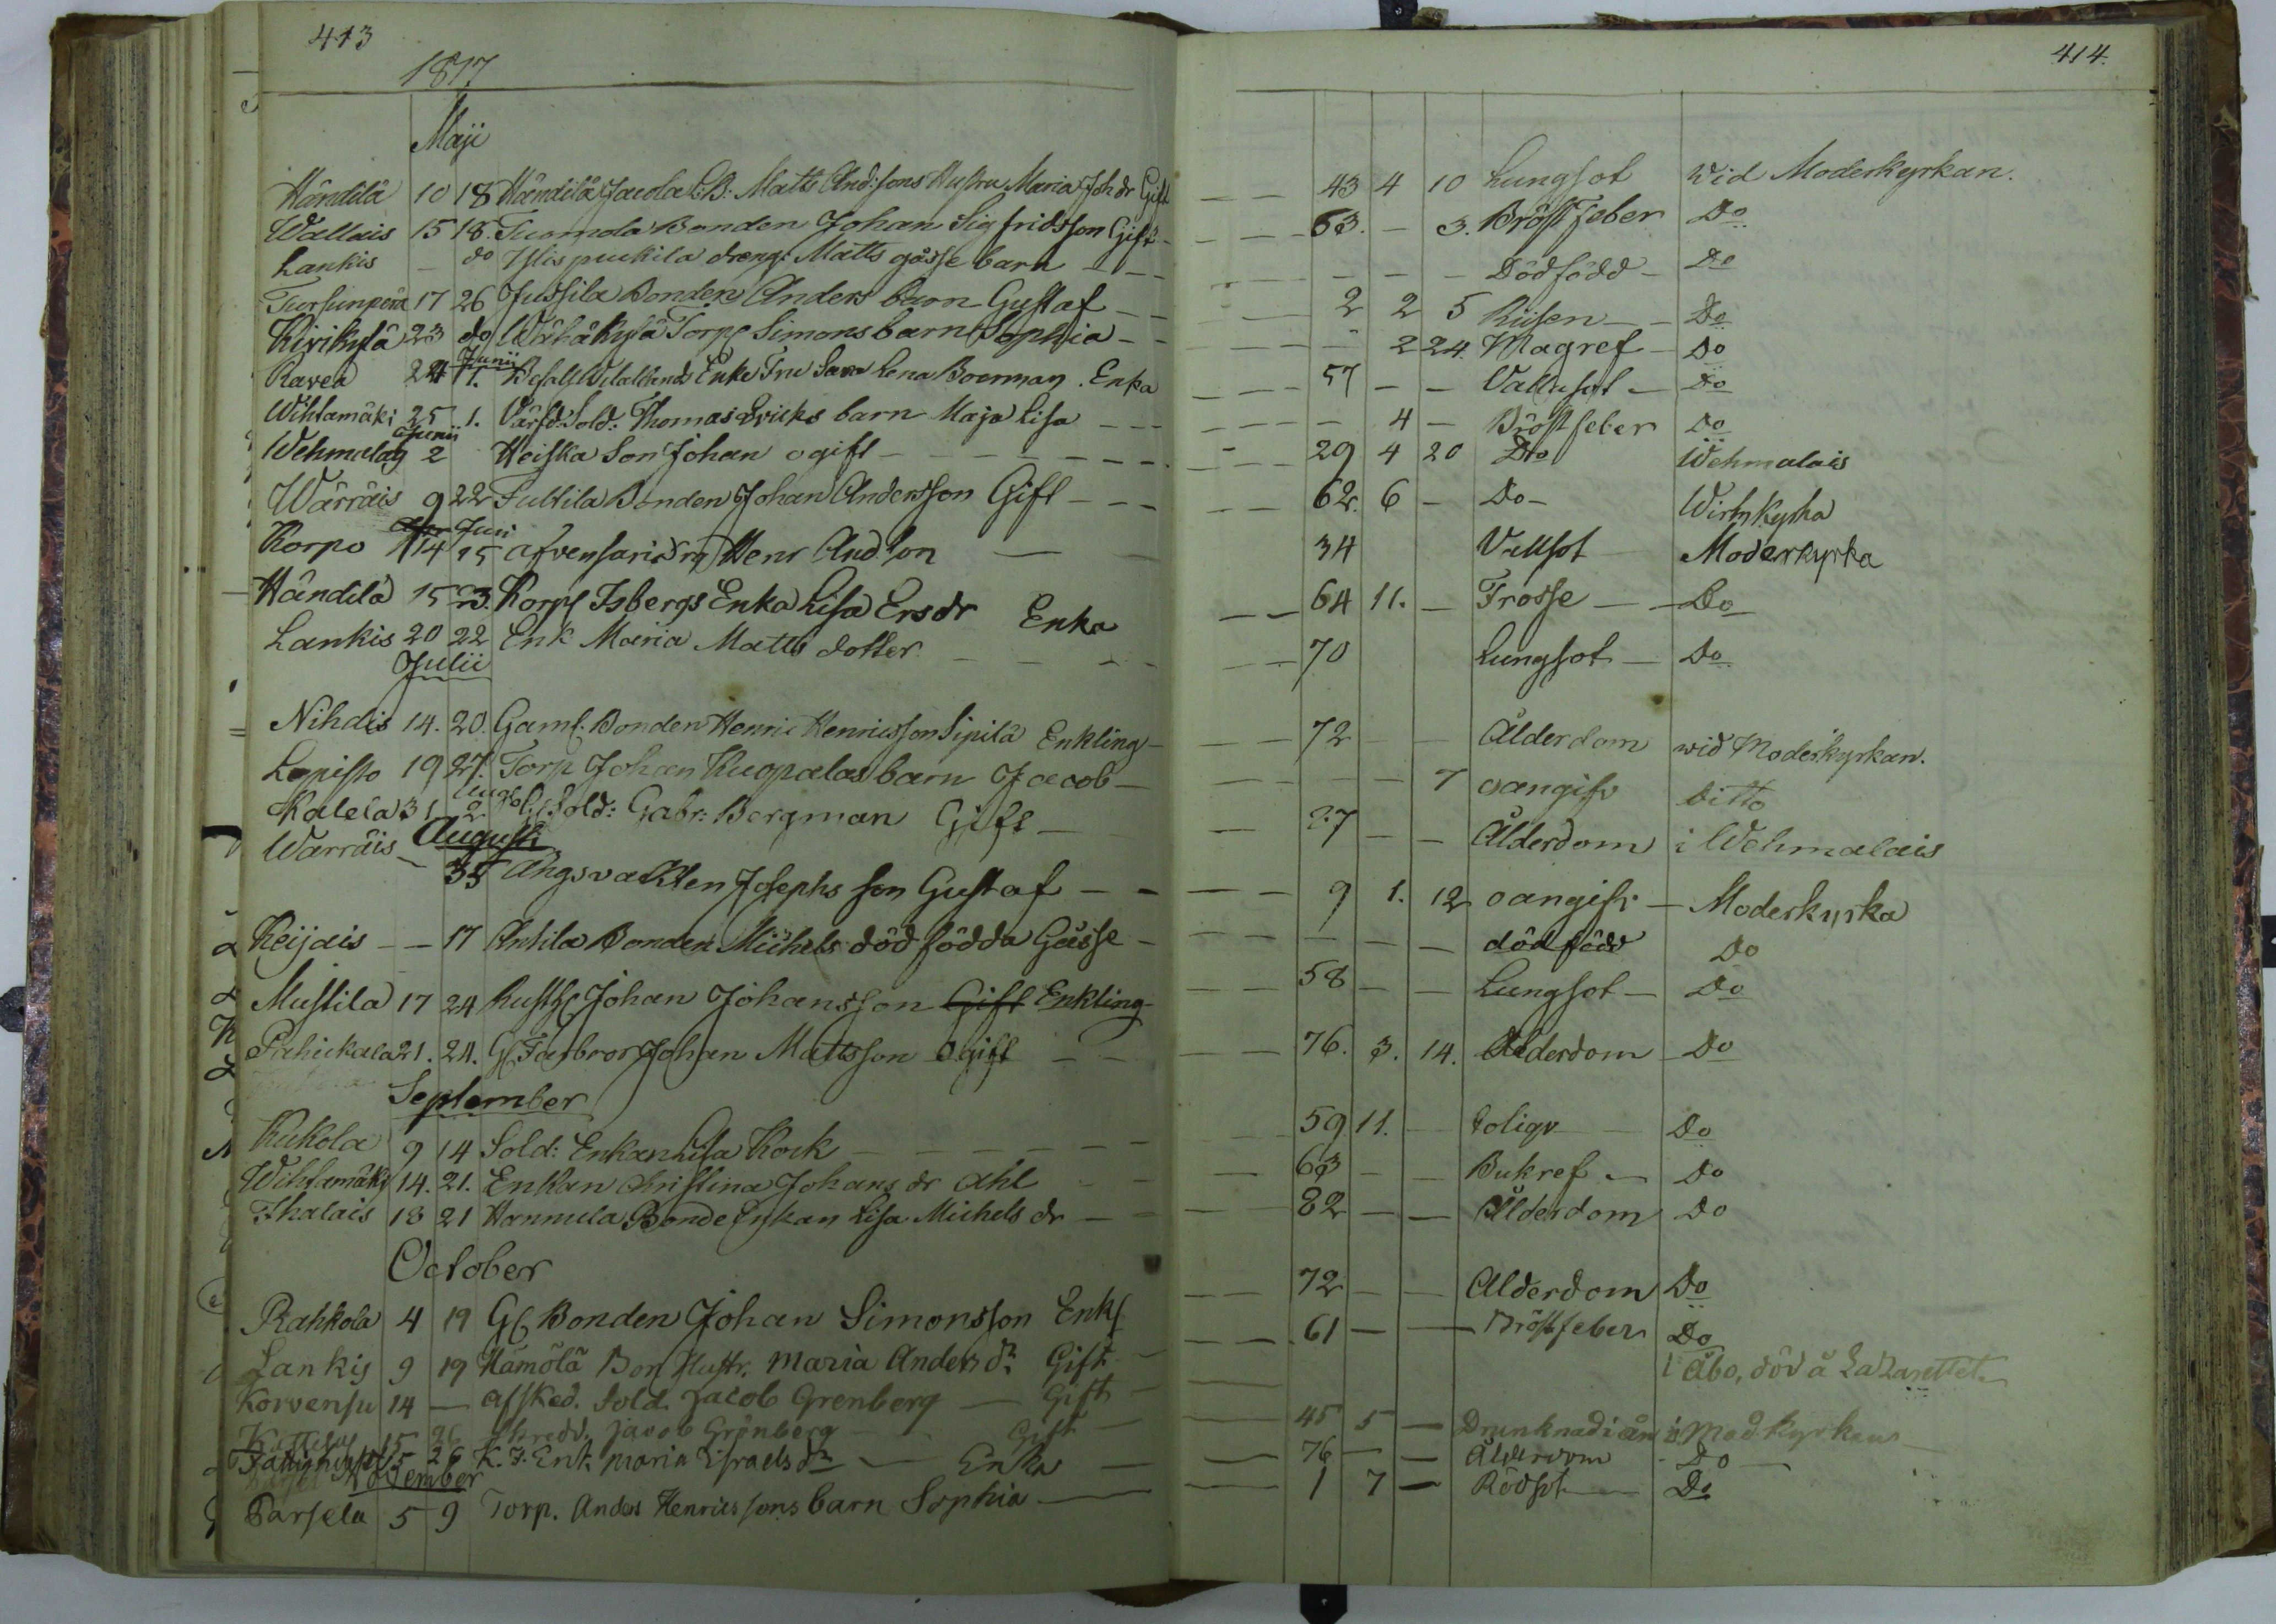 413
1817
Maji
Händilä 10 18 Händilä Jacola Matts And:sons Hustru Maria Joh dr Gift
Wallais 15 18. Tuomola Bonden Johan Sigfridsson Gift
Lankis — do drengs Matts gåsse barn
17 26 Jussila Bonden Anders barn Gustaf
Kirikylä 23 do Wähäkylä Torp Simons barn Sophia
Junii
Ravea 24 1. Enke Fru Lena Boerman. Enka
Wihtamäki 25 1. Sold: Thomas Ericks barn Maja Lisa
Junii
Wehmalais 2 Heiska Son Johan ogift
Wärräis 9 22 Tulkila Bonden Johan Andersson Gift
Juni
Korpo 14 15 Henr And.son
Händilä 15 23. Korpl Isbergs Enka Lisa Ersdr Enka
Lankis 20 22 Enk Maria Matts dotter
Julii
Nihdis 14. 20. Gaml. Bonden Henric Henricsson Sipilä Enkling
Lepisto 19 27. Torp Johan Kuopalas barn Jacob
Kalela 31 Aug 2 Sold: Gabr: Bergman Gift
Wärräis Augusti
Ängsvakten Josephs son Gustaf
Keijais — 17 Antila Bonden Michels död födda Gåsse
Mustila 17 24 Rusth Johan Johansson Gift Enkling
21. 24. Gl Farbror Johan Mattsson Ogift
September
Kukola 9 14 Sold: Enkan Lisa Kock
Wihtamäki 14. 21. Enkan Christina Johans dr Ahl
Ihalais 18 21 Hannula Bonde Enkan Lisa Michels dr
October
Rahkola 4 19 Gl Bonden Johan Simonsson Enkl
Lankis 9 19 Hämölä Bon Hustr. Maria Anders dr Gift
Korvensu 14 — afsked. Sold. Jacob Grenberg — Gift
15 26 Skredd. Jacob Grönberg Gift
15 26 K. I. Enk. Maria Israels dr — Enka
November
Parsela 5 9 Torp. Anders Henricssons barn Sophia
414.
43 4 10 Lungsot wid Moderkyrkan.
63. — 3. Bröstfeber Do
— — — Dödfödd Do
2 2 5 Riisen Do
2 24. Magref Do
57 — — Vattusot Do
4 — Bröstfeber Do
29 4 20 Do Wehmalais
62. 6 — Do Wirhkyrka
34 Vattsot Moderkyrka
64 11. — Frosse Do
70 Lungsot Do
72 Ålderdom wid Moderkyrkan.
7 oangifv ditto
27 — — Ålderdom i Wehmalais
9 1. 12 oangifv Moderkyrka
— — — död född Do
58 — — Lungsot Do
76. 3. 14. Ålderdom Do
59 11. Do
63 — — Bukref Do
82 — — Ålderdom Do
72 — — Ålderdom Do
61 — — Bröstfeber Do
i Åbo, död å Lazarettet
45 5 — Drunknad i ån i Mod. Kyrkan
76 — — Ålderdom Do
1 7 — Rödsot Do